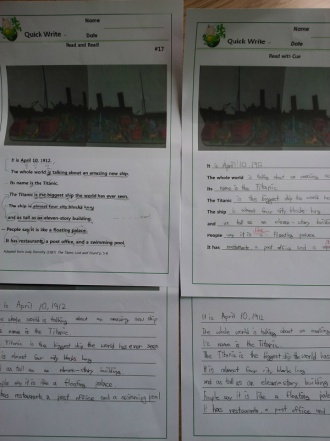 Name
Quick Write - Date
Read and Read!
#17
It is April 10, 1912
The whole world is talking about an amazing new ship.
Its name is the Titanic.
The Titanic is the biggest ship the world has ever seen.
The ship is almost four city blocks long
and as tall as an eleven-story building
People say it is like a floating palace.
It has restaurants, a post office, and a swimming pool.
Name
Quick Write - Date
Read with Gap
It is April 10, 1912
The whole world is talking about an amazing
Its name is the Titanic
The Titanic is the biggest ship the world has
The ship is almost four city blocks long
and as tall as an eleven-story building
People say it is like a floating palace
It has restaurants a post office and a
is April 10, 1912
whole world is talking about an amazing new ship
name is the Titanic
Titanic is the biggest ship the world has ever seen
is almost four city blocks long
as tall as an eleven-story building
people say it is like a floating palace
has restaurants a post office and a swimming pool
It is April 10, 1912
The whole world is talking about an amazing
name is the Titanic
The Titanic is the biggest ship the world has
is almost four city blocks long
and as tall as an eleven-story building
People say it is like a floating palace
It has restaurants a post office and